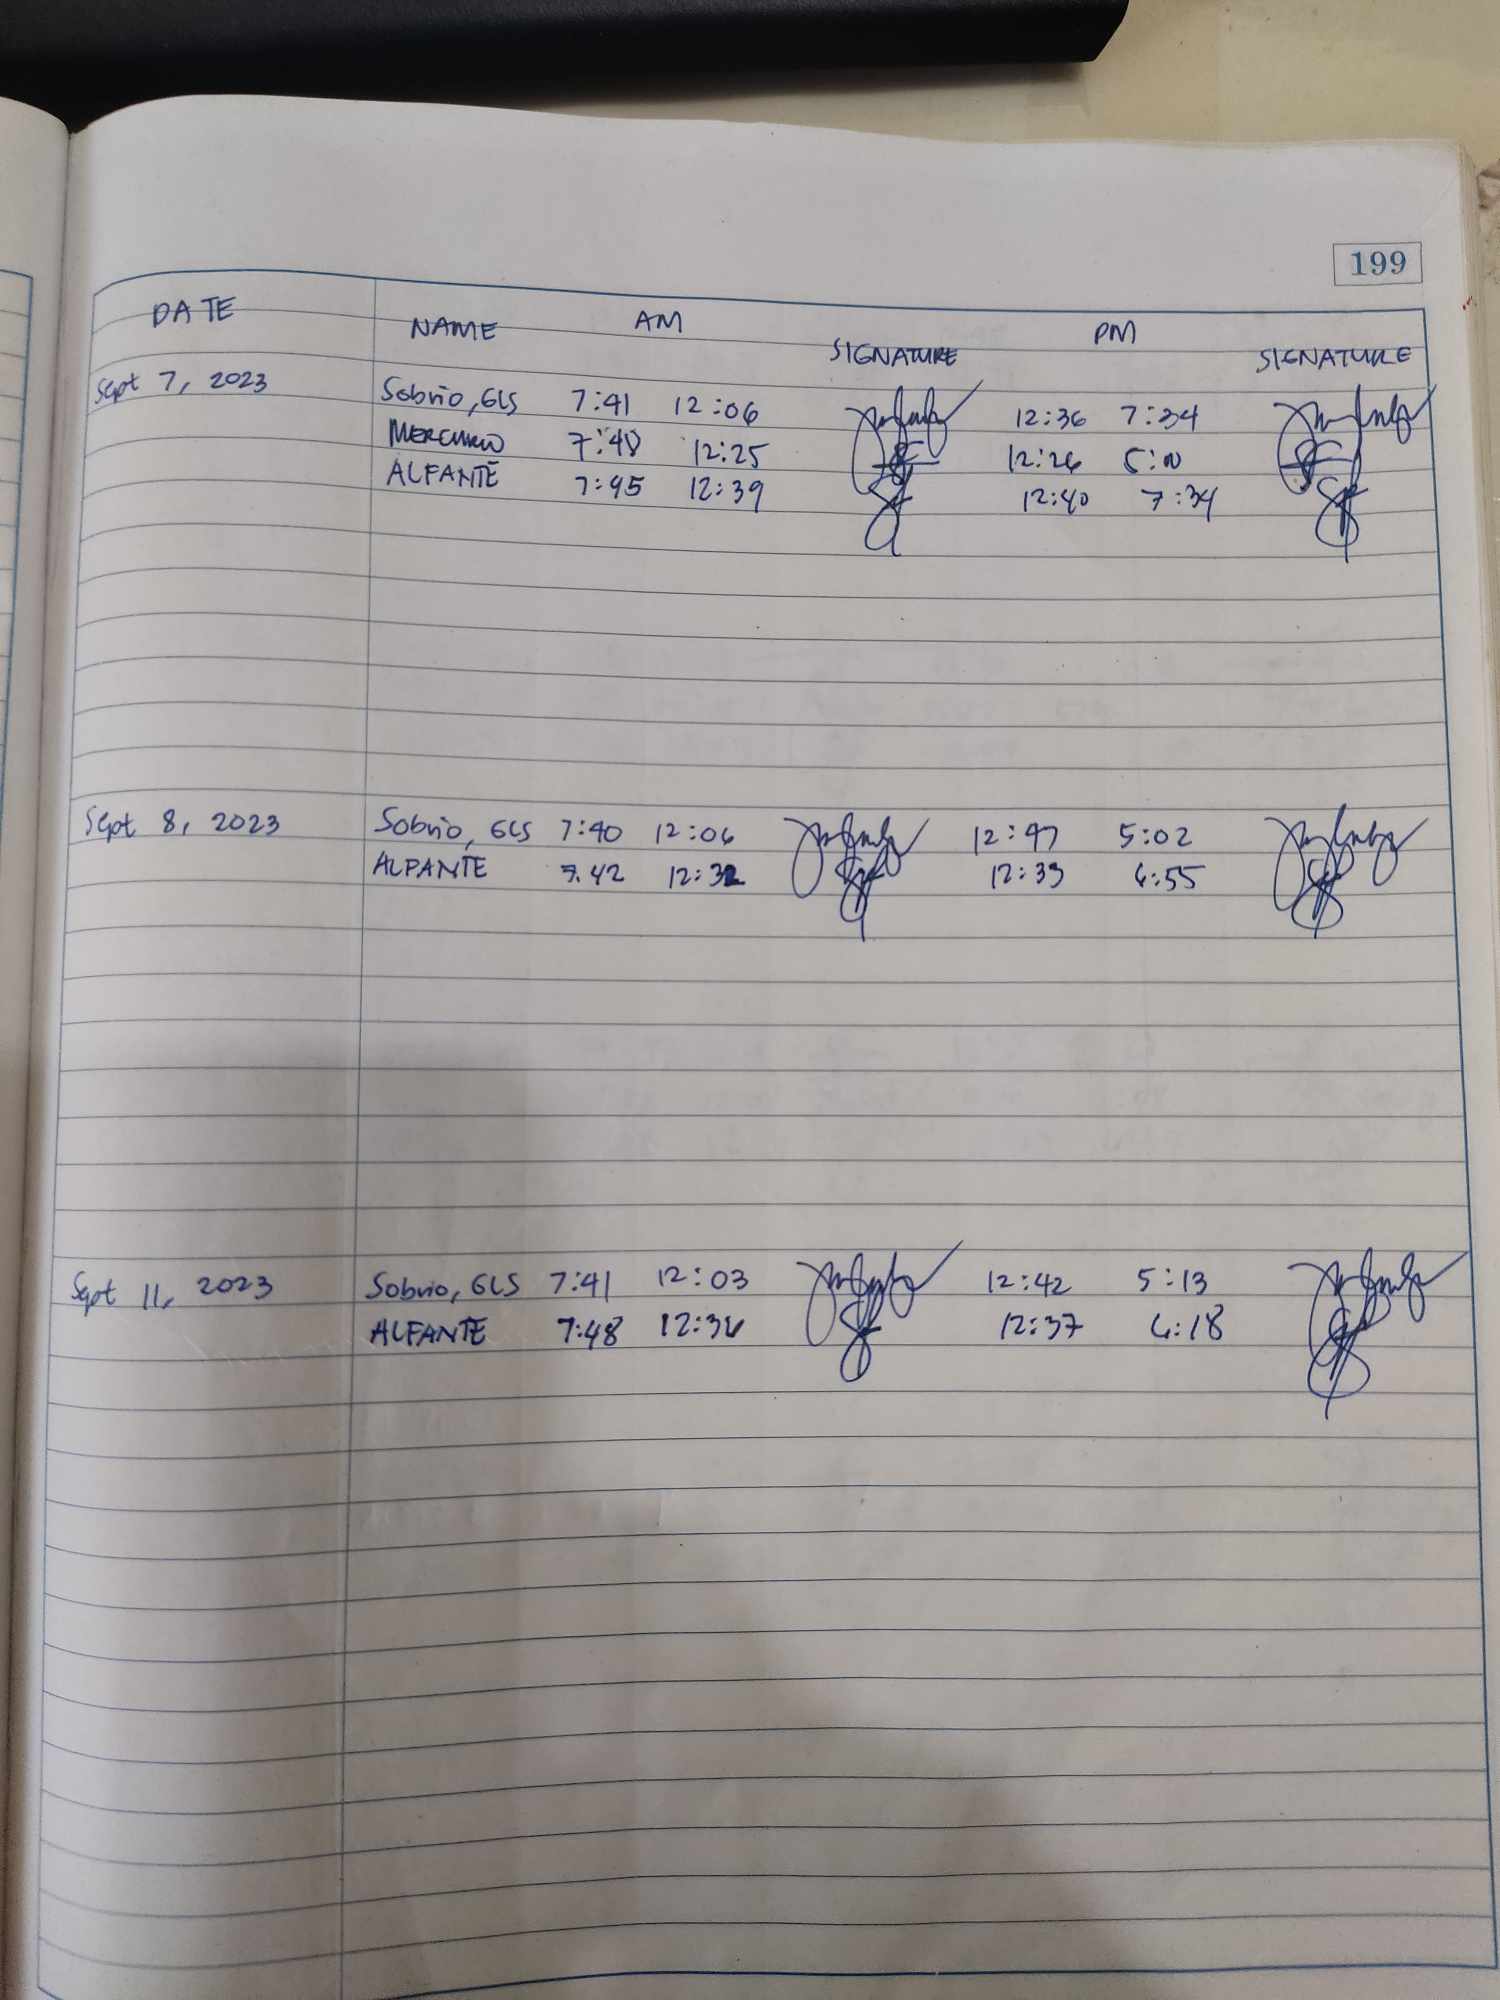 199
DATE NAME AM SIGNATURE PM SIGNATURE
Sept 7, 2023 Sobrio, GLS 7:41 12:06 12:36 7:34
MERCURIO 7:48 12:25 12:26
ALFANTE 7:45 12:39 12:40 7:34
Sept 8, 2023 Sobrio, GLS 7:40 12:06 12:47 5:02
ALFANTE 7:42 12:32 12:33 6:55
Sept 11, 2023 Sobrio, GLS 7:41 12:03 12:42 5:13
ALFANTE 7:48 12:36 12:37 6:18